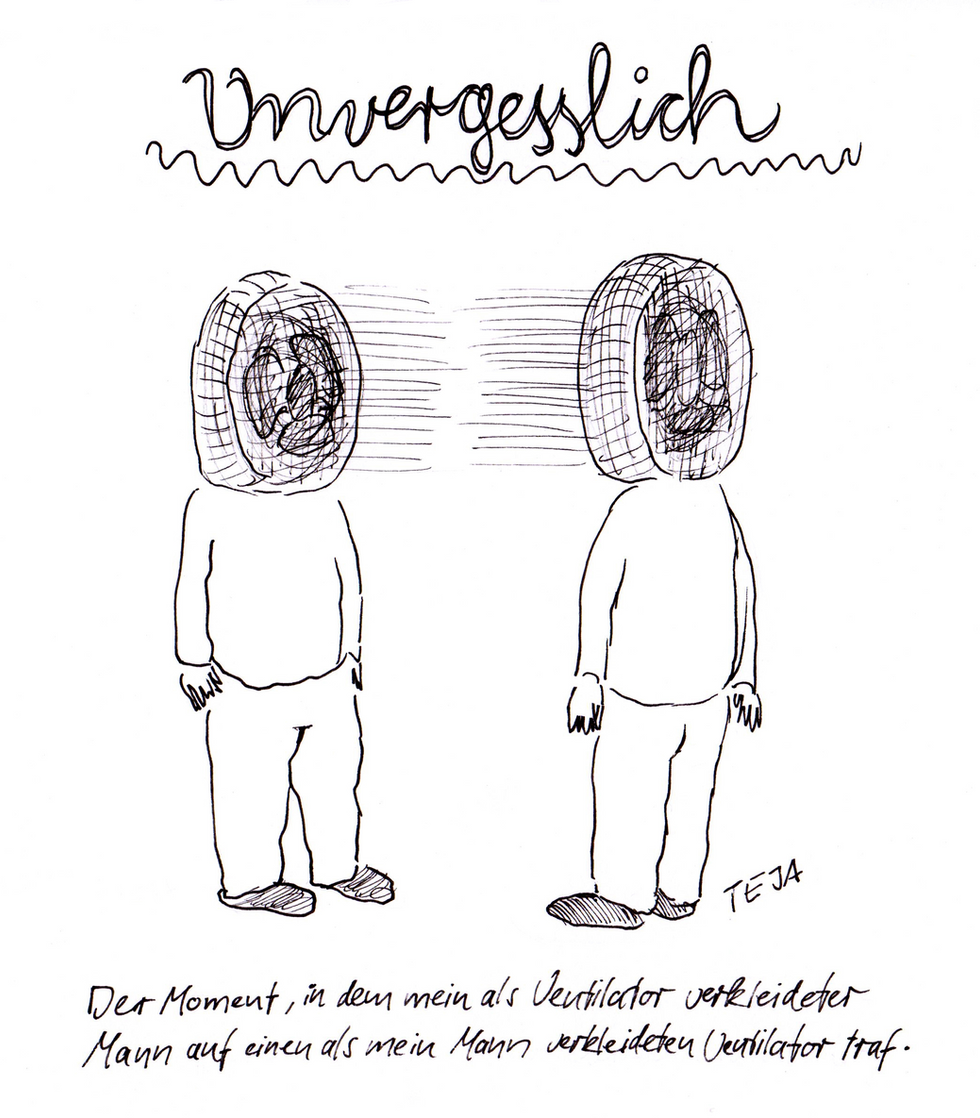 Unvergesslich
TEJA
Der Moment, in dem mein als Ventilator verkleideter
Mann auf einen als mein Mann verkleideten Ventilator traf.